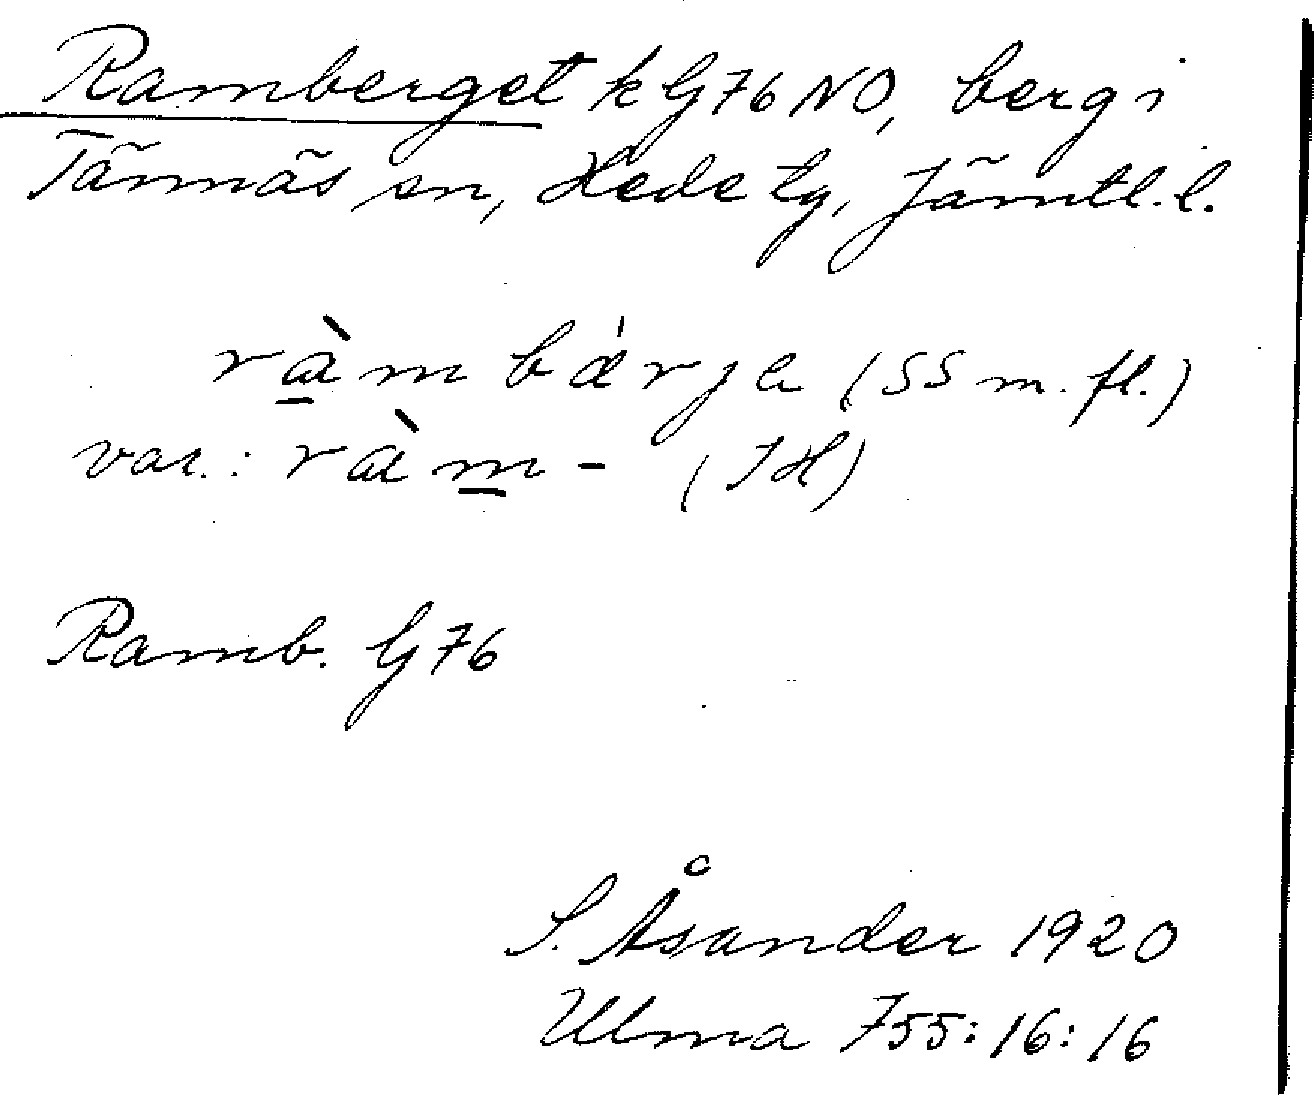 Ramberget k G76 NO, berg i
Tännäs sn, Hede tg, Jämtl. l.
rà̱m bα̍rje (SS m. fl.)
var.: ràm̱ - (JH)
Ramb. G76
S. Åsander 1920
Ulma 755:16:16